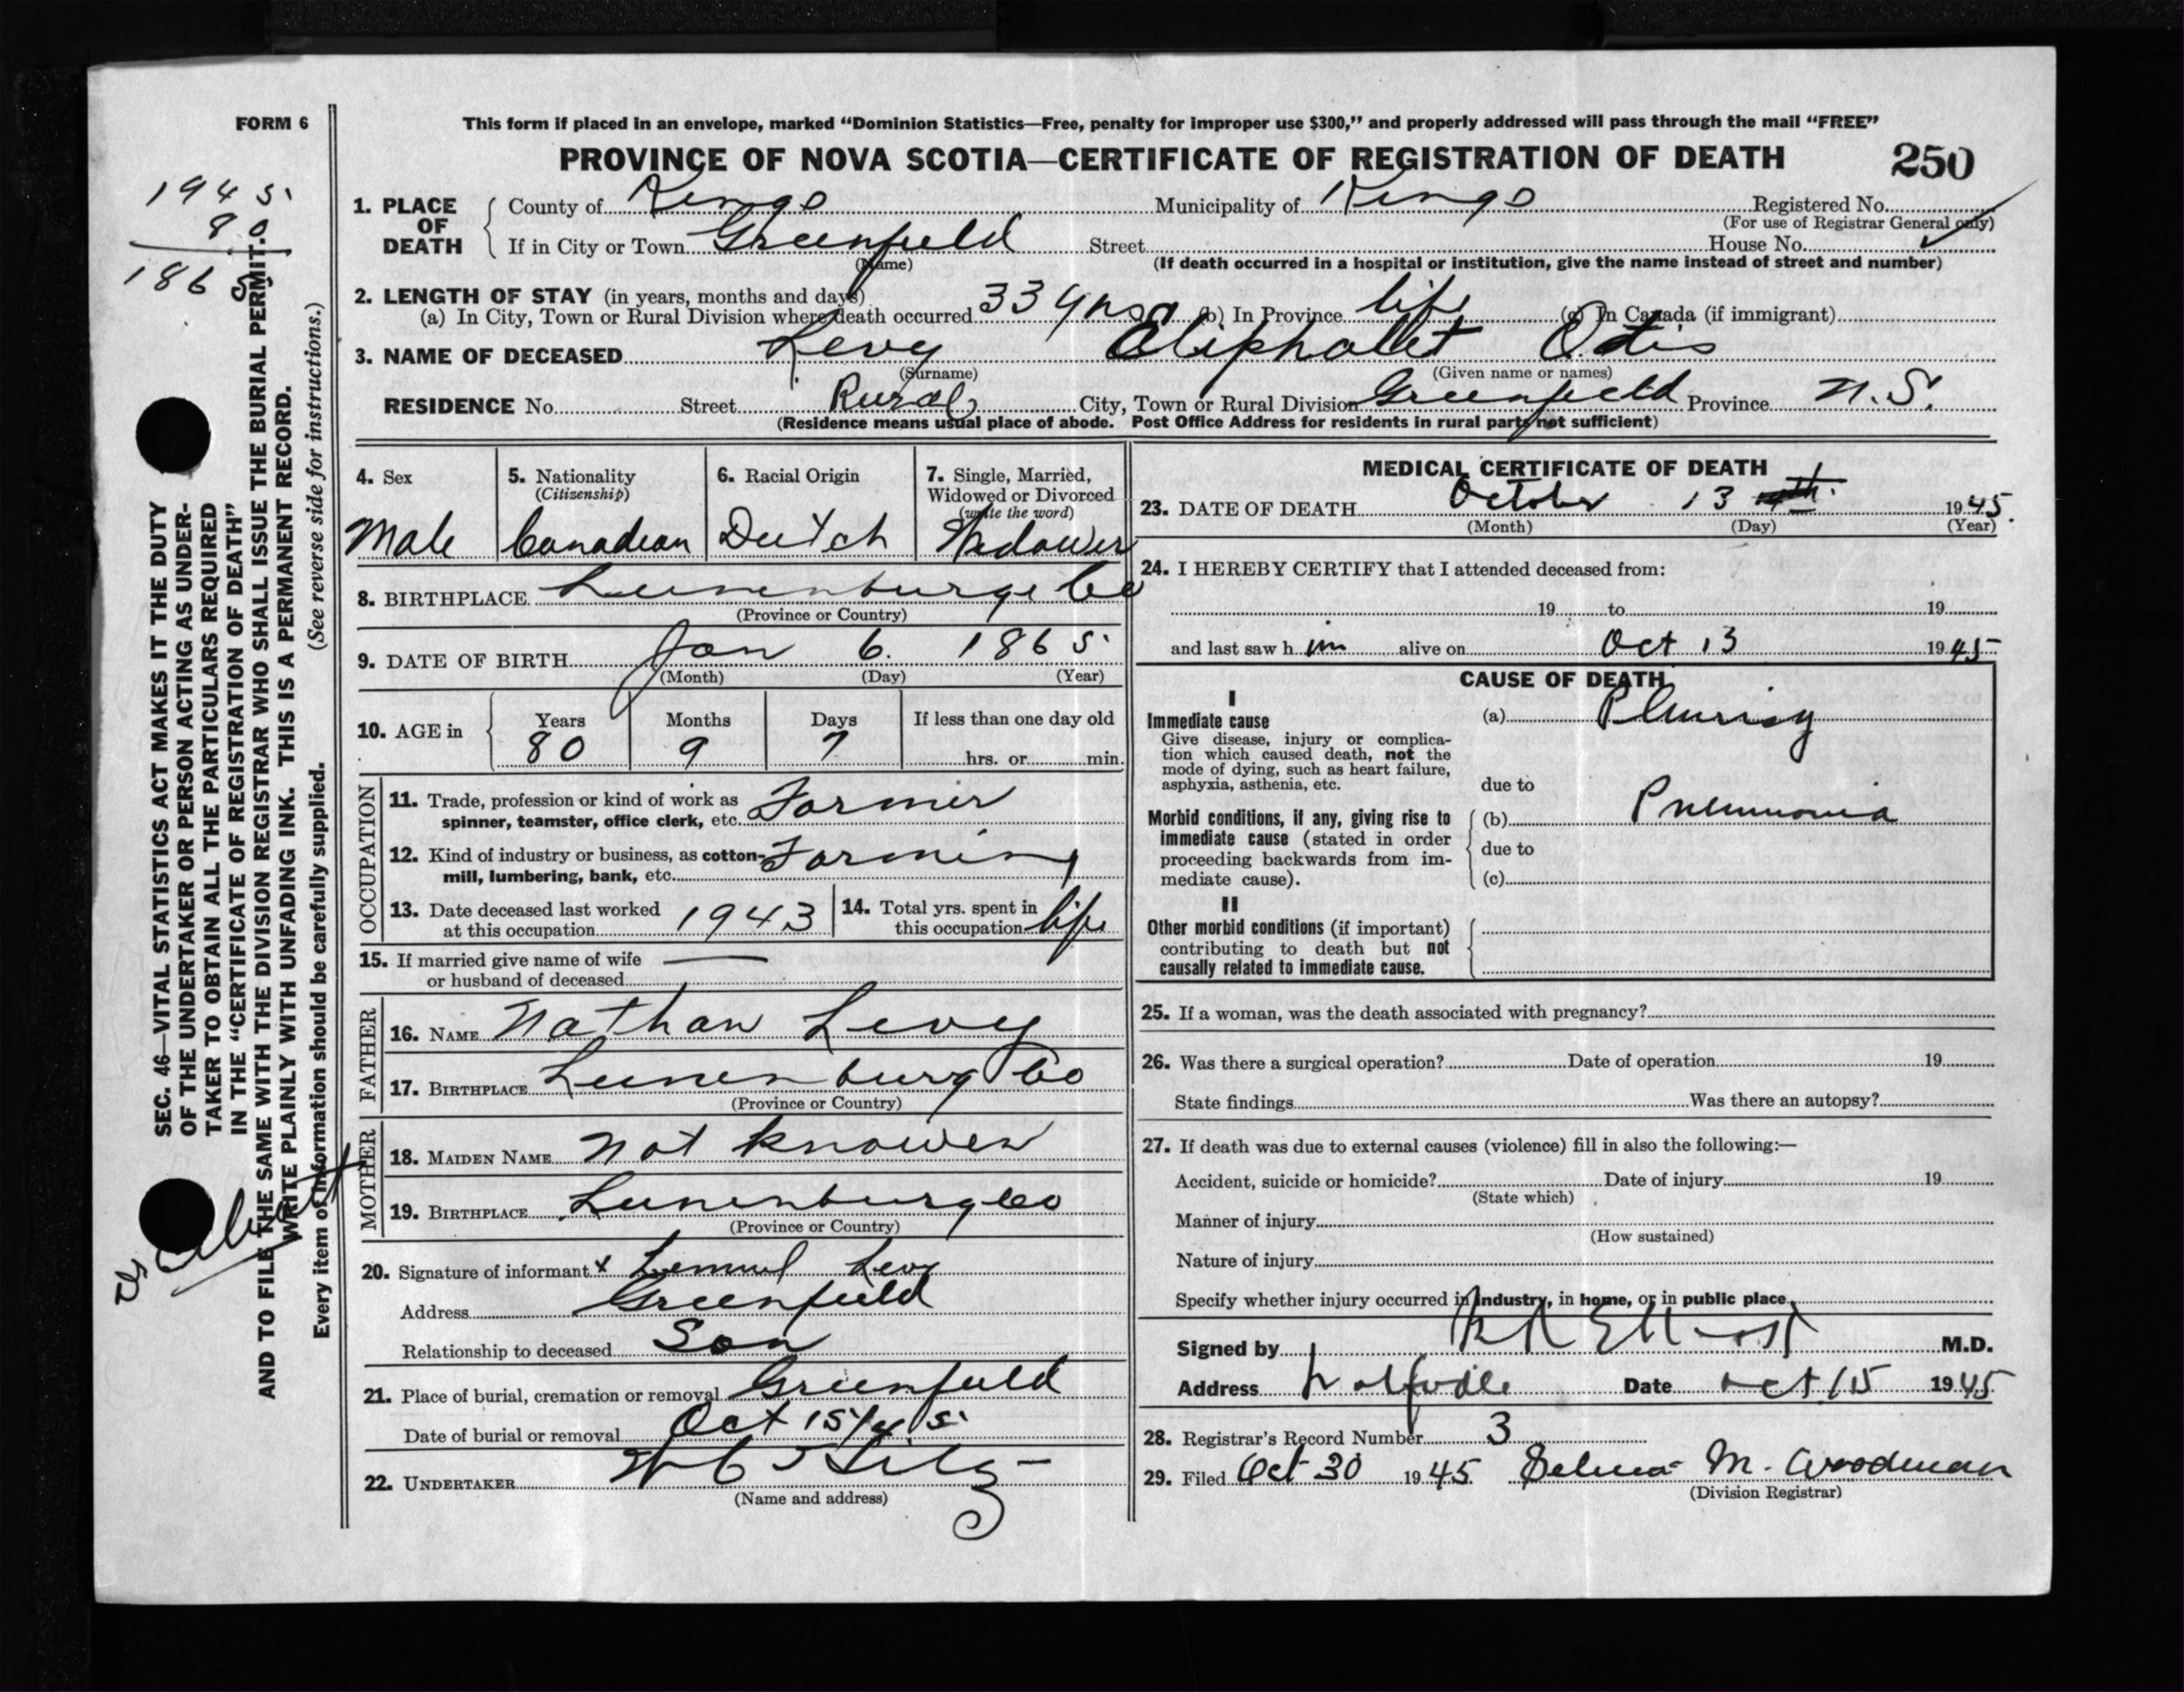 FORM 6
This form if placed in an envelope, marked “Dominion Statistics—Free, penalty for improper use $300,” and properly addressed will pass through the mail “FREE”
PROVINCE OF NOVA SCOTIA—CERTIFICATE OF REGISTRATION OF DEATH 250
1945
80
1865
1. PLACE OF DEATH
County of Kings Municipality of Kings Registered No.
(For use of Registrar General only)
If in City or Town Greenfield Street House No.
(Name) (If death occurred in a hospital or institution, give the name instead of street and number)
2. LENGTH OF STAY (in years, months and days)
(a) In City, Town or Rural Division where death occurred 33 yrs (b) In Province life (c) In Canada (if immigrant)
3. NAME OF DECEASED Levy Eliphalet Otis
(Surname) (Given name or names)
RESIDENCE No. Street Rural City, Town or Rural Division Greenfield Province N.S.
(Residence means usual place of abode. Post Office Address for residents in rural parts not sufficient)
SEC. 46—VITAL STATISTICS ACT MAKES IT THE DUTY
OF THE UNDERTAKER OR PERSON ACTING AS UNDER-
TAKER TO OBTAIN ALL THE PARTICULARS REQUIRED
IN THE “CERTIFICATE OF REGISTRATION OF DEATH”
AND TO FILE THE SAME WITH THE DIVISION REGISTRAR WHO SHALL ISSUE THE BURIAL PERMIT.
WRITE PLAINLY WITH UNFADING INK. THIS IS A PERMANENT RECORD.
Every item of information should be carefully supplied. (See reverse side for instructions.)
4. Sex
Male
5. Nationality
(Citizenship)
Canadian
6. Racial Origin
Dutch
7. Single, Married,
Widowed or Divorced
(write the word)
Widower
8. BIRTHPLACE Lunenburge Co
(Province or Country)
9. DATE OF BIRTH Jan 6. 1865
(Month) (Day) (Year)
10. AGE in Years Months Days If less than one day old
80 9 7 hrs. or min.
OCCUPATION
11. Trade, profession or kind of work as
spinner, teamster, office clerk, etc. Farmer
12. Kind of industry or business, as cotton-
mill, lumbering, bank, etc. Farming
13. Date deceased last worked
at this occupation 1943
14. Total yrs. spent in
this occupation life
15. If married give name of wife
or husband of deceased —
FATHER
16. NAME Nathan Levy
17. BIRTHPLACE Lunenburg Co
(Province or Country)
MOTHER
18. MAIDEN NAME not knowen
19. BIRTHPLACE Lunenburg Co
(Province or Country)
20. Signature of informant x Lemuel Levy
Address Greenfield
Relationship to deceased Son
21. Place of burial, cremation or removal Greenfield
Date of burial or removal Oct 15/45
22. UNDERTAKER
(Name and address)
MEDICAL CERTIFICATE OF DEATH
23. DATE OF DEATH October 13 th. 1945.
(Month) (Day) (Year)
24. I HEREBY CERTIFY that I attended deceased from:
19 to 19
and last saw h im alive on Oct 13 1945
CAUSE OF DEATH
I
Immediate cause
Give disease, injury or complica-
tion which caused death, not the
mode of dying, such as heart failure,
asphyxia, asthenia, etc.
(a) Pleurisy
due to
Morbid conditions, if any, giving rise to
immediate cause (stated in order
proceeding backwards from im-
mediate cause).
(b) Pneumonia
due to
(c)
II
Other morbid conditions (if important)
contributing to death but not
causally related to immediate cause.
25. If a woman, was the death associated with pregnancy?
26. Was there a surgical operation? Date of operation 19
State findings Was there an autopsy?
27. If death was due to external causes (violence) fill in also the following:—
Accident, suicide or homicide? Date of injury 19
(State which)
Manner of injury
(How sustained)
Nature of injury
Specify whether injury occurred in industry, in home, or in public place
Signed by Elliott M.D.
Address Wolfville Date Oct 15 1945
28. Registrar's Record Number 3
29. Filed Oct 30 1945. Selena M. Woodman
(Division Registrar)